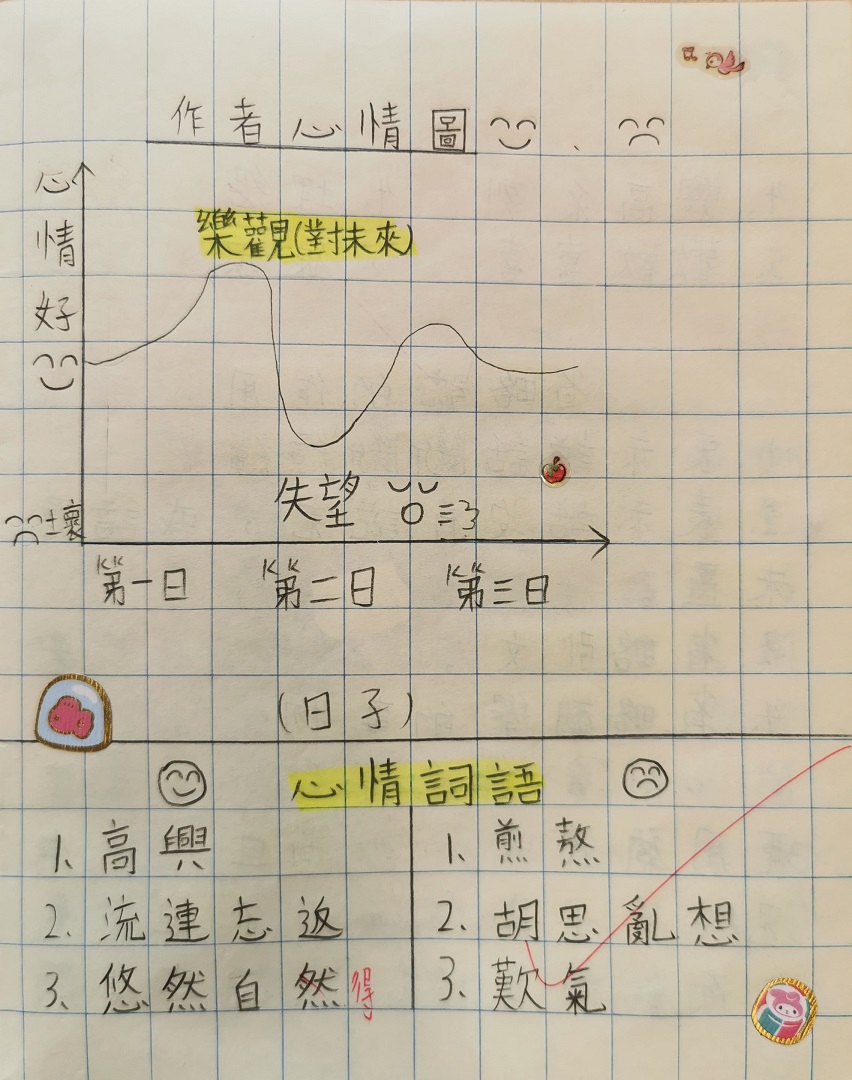 作者心情圖 、
心情好
樂觀(對未來)
失望
壞
第一日 第二日 第三日
(日子)
心情詞語
1、高興
2、流連忘返
3、悠然自然得
1、煎熬
2、胡思亂想
3、歎氣